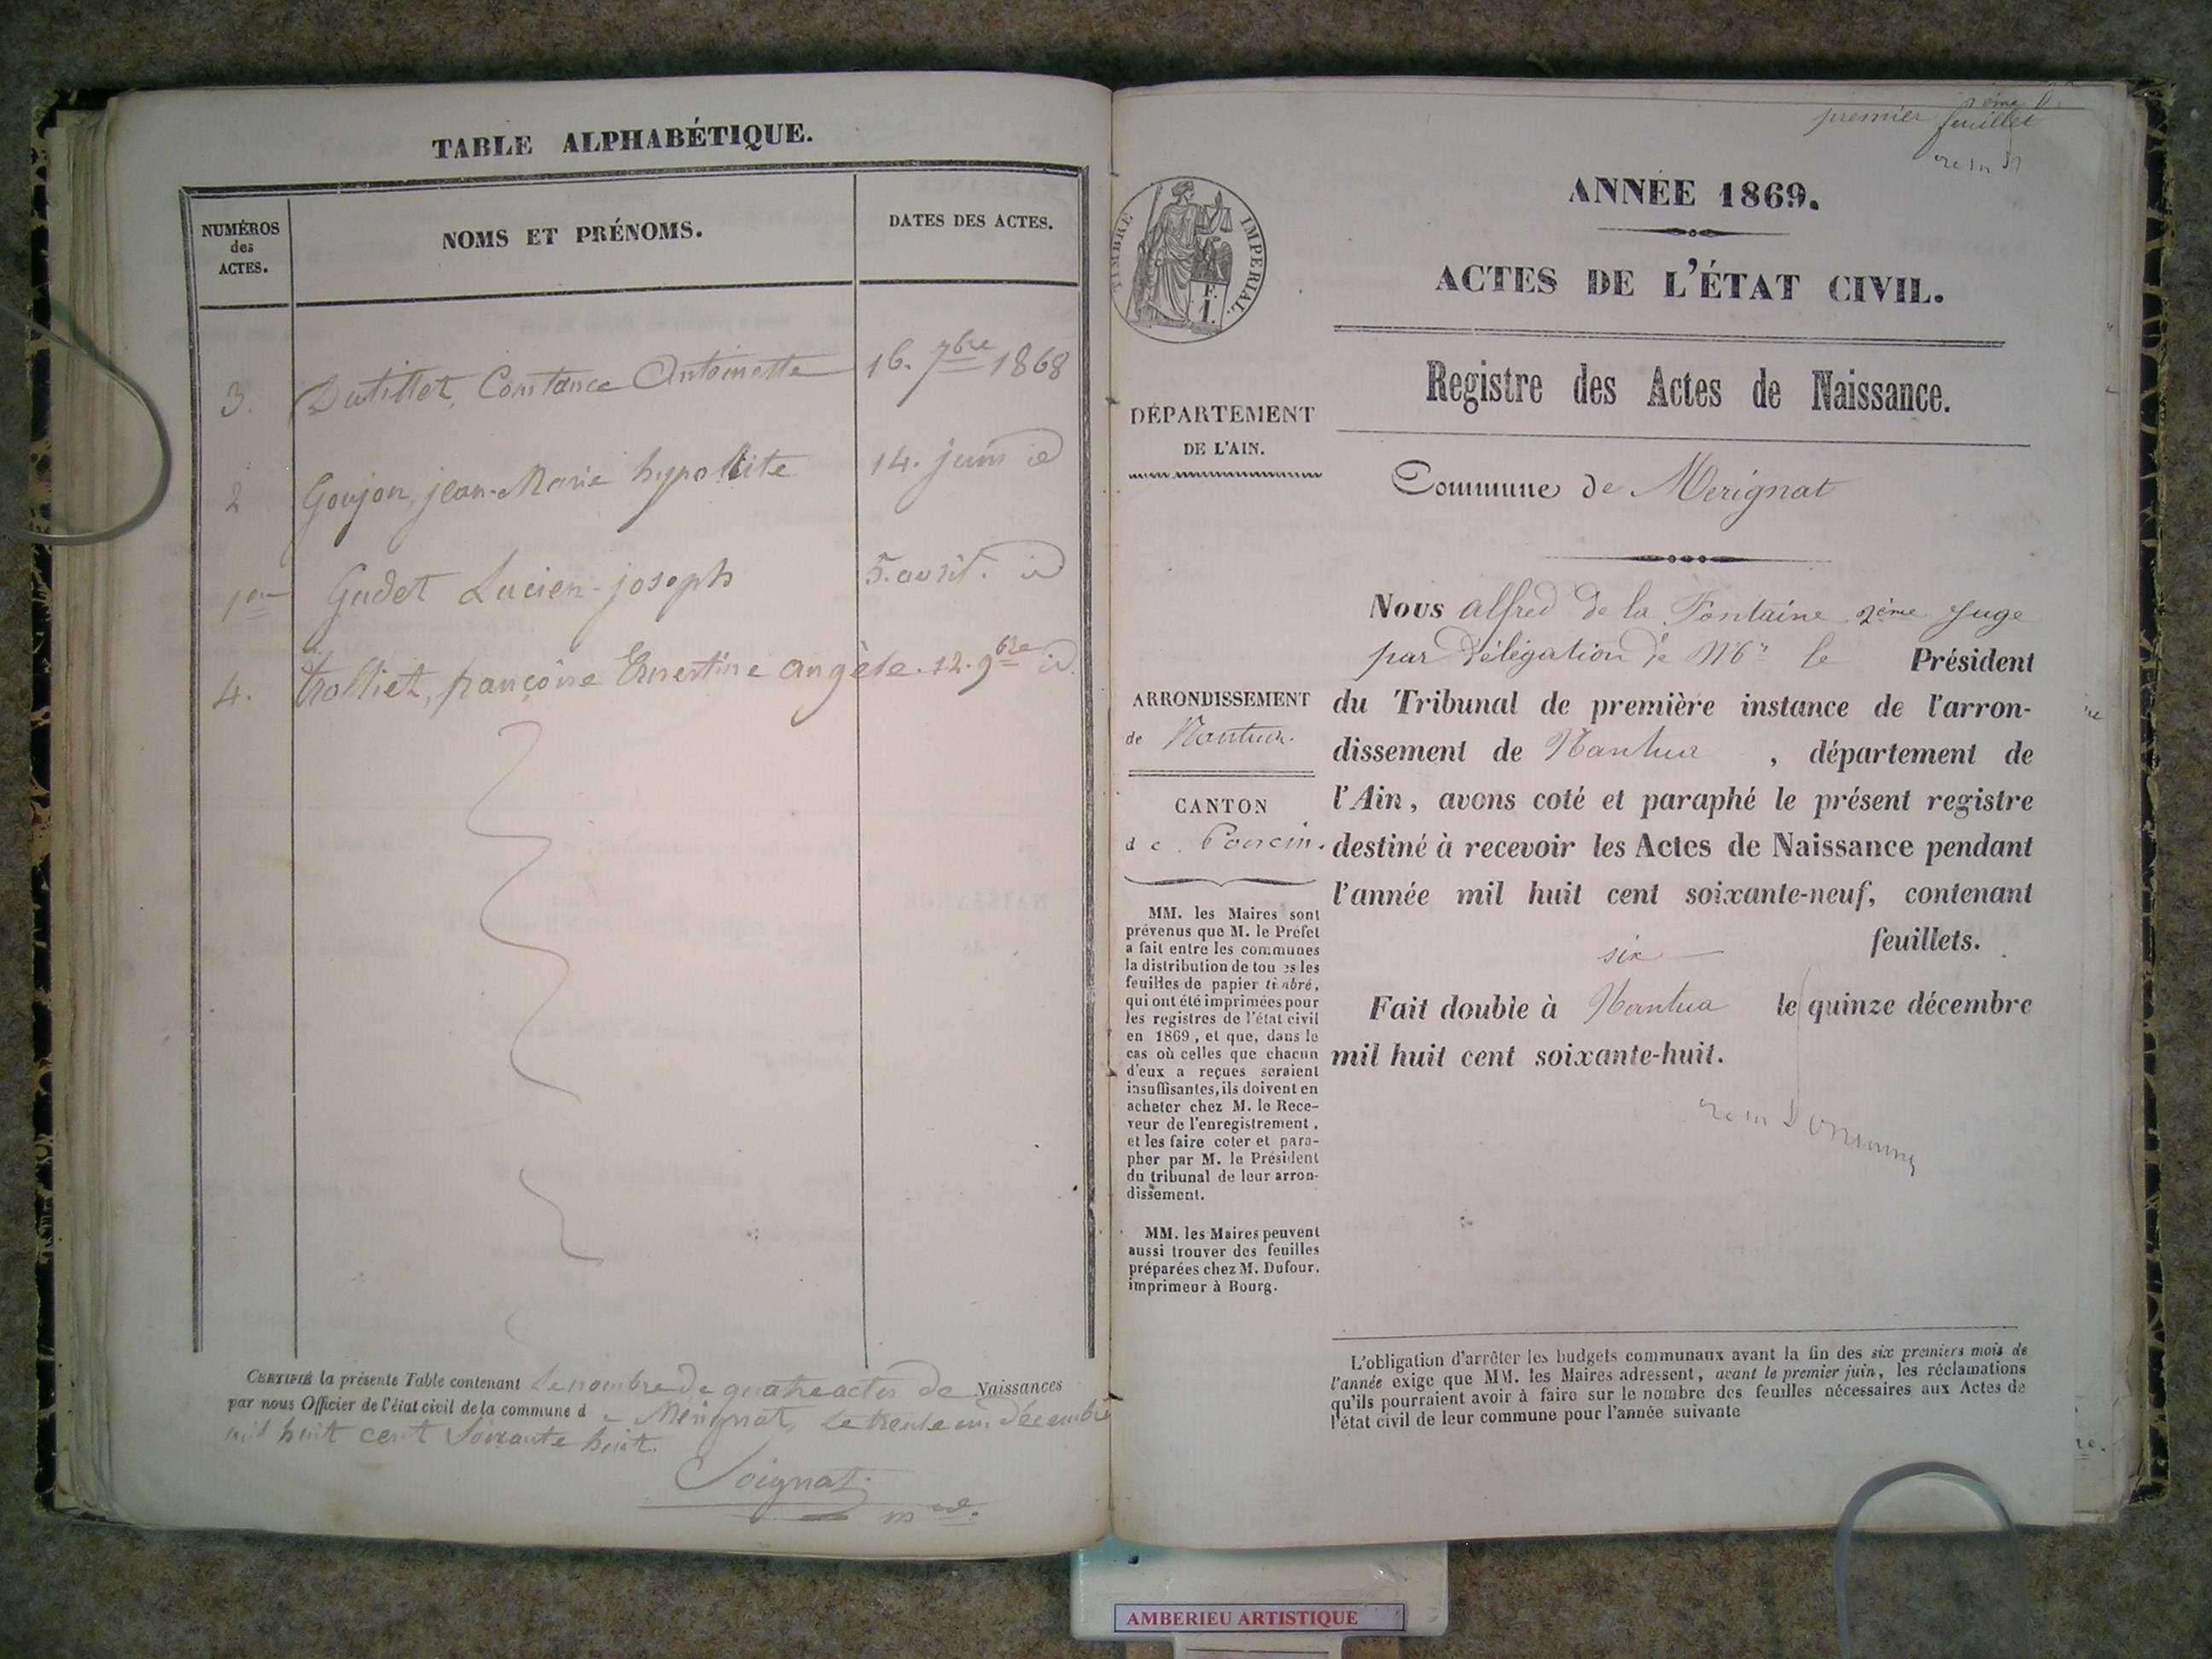 TABLE ALPHABÉTIQUE.
NUMÉROS
des
ACTES.
NOMS ET PRÉNOMS.
DATES DES ACTES.
3. Dutillet, Constance Antoinette 16. 7bre 1868
2 Goujon, jean-Marie hypollite 14. juin id
1er Gudet Lucien-joseph 5. avril. id
4. trolliet, françoise Ernestine angèle. 12. 9bre id.
CERTIFIÉ la présente Table contenant le nombre de quatre actes de Naissances
par nous Officier de l'état civil de la commune de Mérignat, le trente un décembre
mil huit cent soixante huit.
Soignat
premier feuillet
TIMBRE IMPERIAL.
ANNÉE 1869.
ACTES DE L'ÉTAT CIVIL.
Registre des Actes de Naissance.
Commune de Merignat
DÉPARTEMENT
DE L'AIN.
ARRONDISSEMENT
de Nantua.
CANTON
de Poncin.
MM. les Maires sont
prévenus que M. le Préfet
a fait entre les communes
la distribution de toutes les
feuilles de papier timbré,
qui ont été imprimées pour
les registres de l'état civil
en 1869, et que, dans le
cas où celles que chacun
d'eux a reçues seraient
insuffisantes, ils doivent en
acheter chez M. le Rece-
veur de l'enregistrement,
et les faire coter et para-
pher par M. le Président
du tribunal de leur arron-
dissement.
MM. les Maires peuvent
aussi trouver des feuilles
préparées chez M. Dufour,
imprimeur à Bourg.
Nous alfred de la Fontaine 2ème Juge
par délégation de Mr le Président
du Tribunal de première instance de l'arron-
dissement de Nantua, département de
l'Ain, avons coté et paraphé le présent registre
destiné à recevoir les Actes de Naissance pendant
l'année mil huit cent soixante-neuf, contenant
six feuillets.
Fait double à Nantua le quinze décembre
mil huit cent soixante-huit.
L'obligation d'arrêter les budgets communaux avant la fin des six premiers mois de
l'année exige que MM. les Maires adressent, avant le premier juin, les réclamations
qu'ils pourraient avoir à faire sur le nombre des feuilles nécessaires aux Actes de
l'état civil de leur commune pour l'année suivante
AMBERIEU ARTISTIQUE